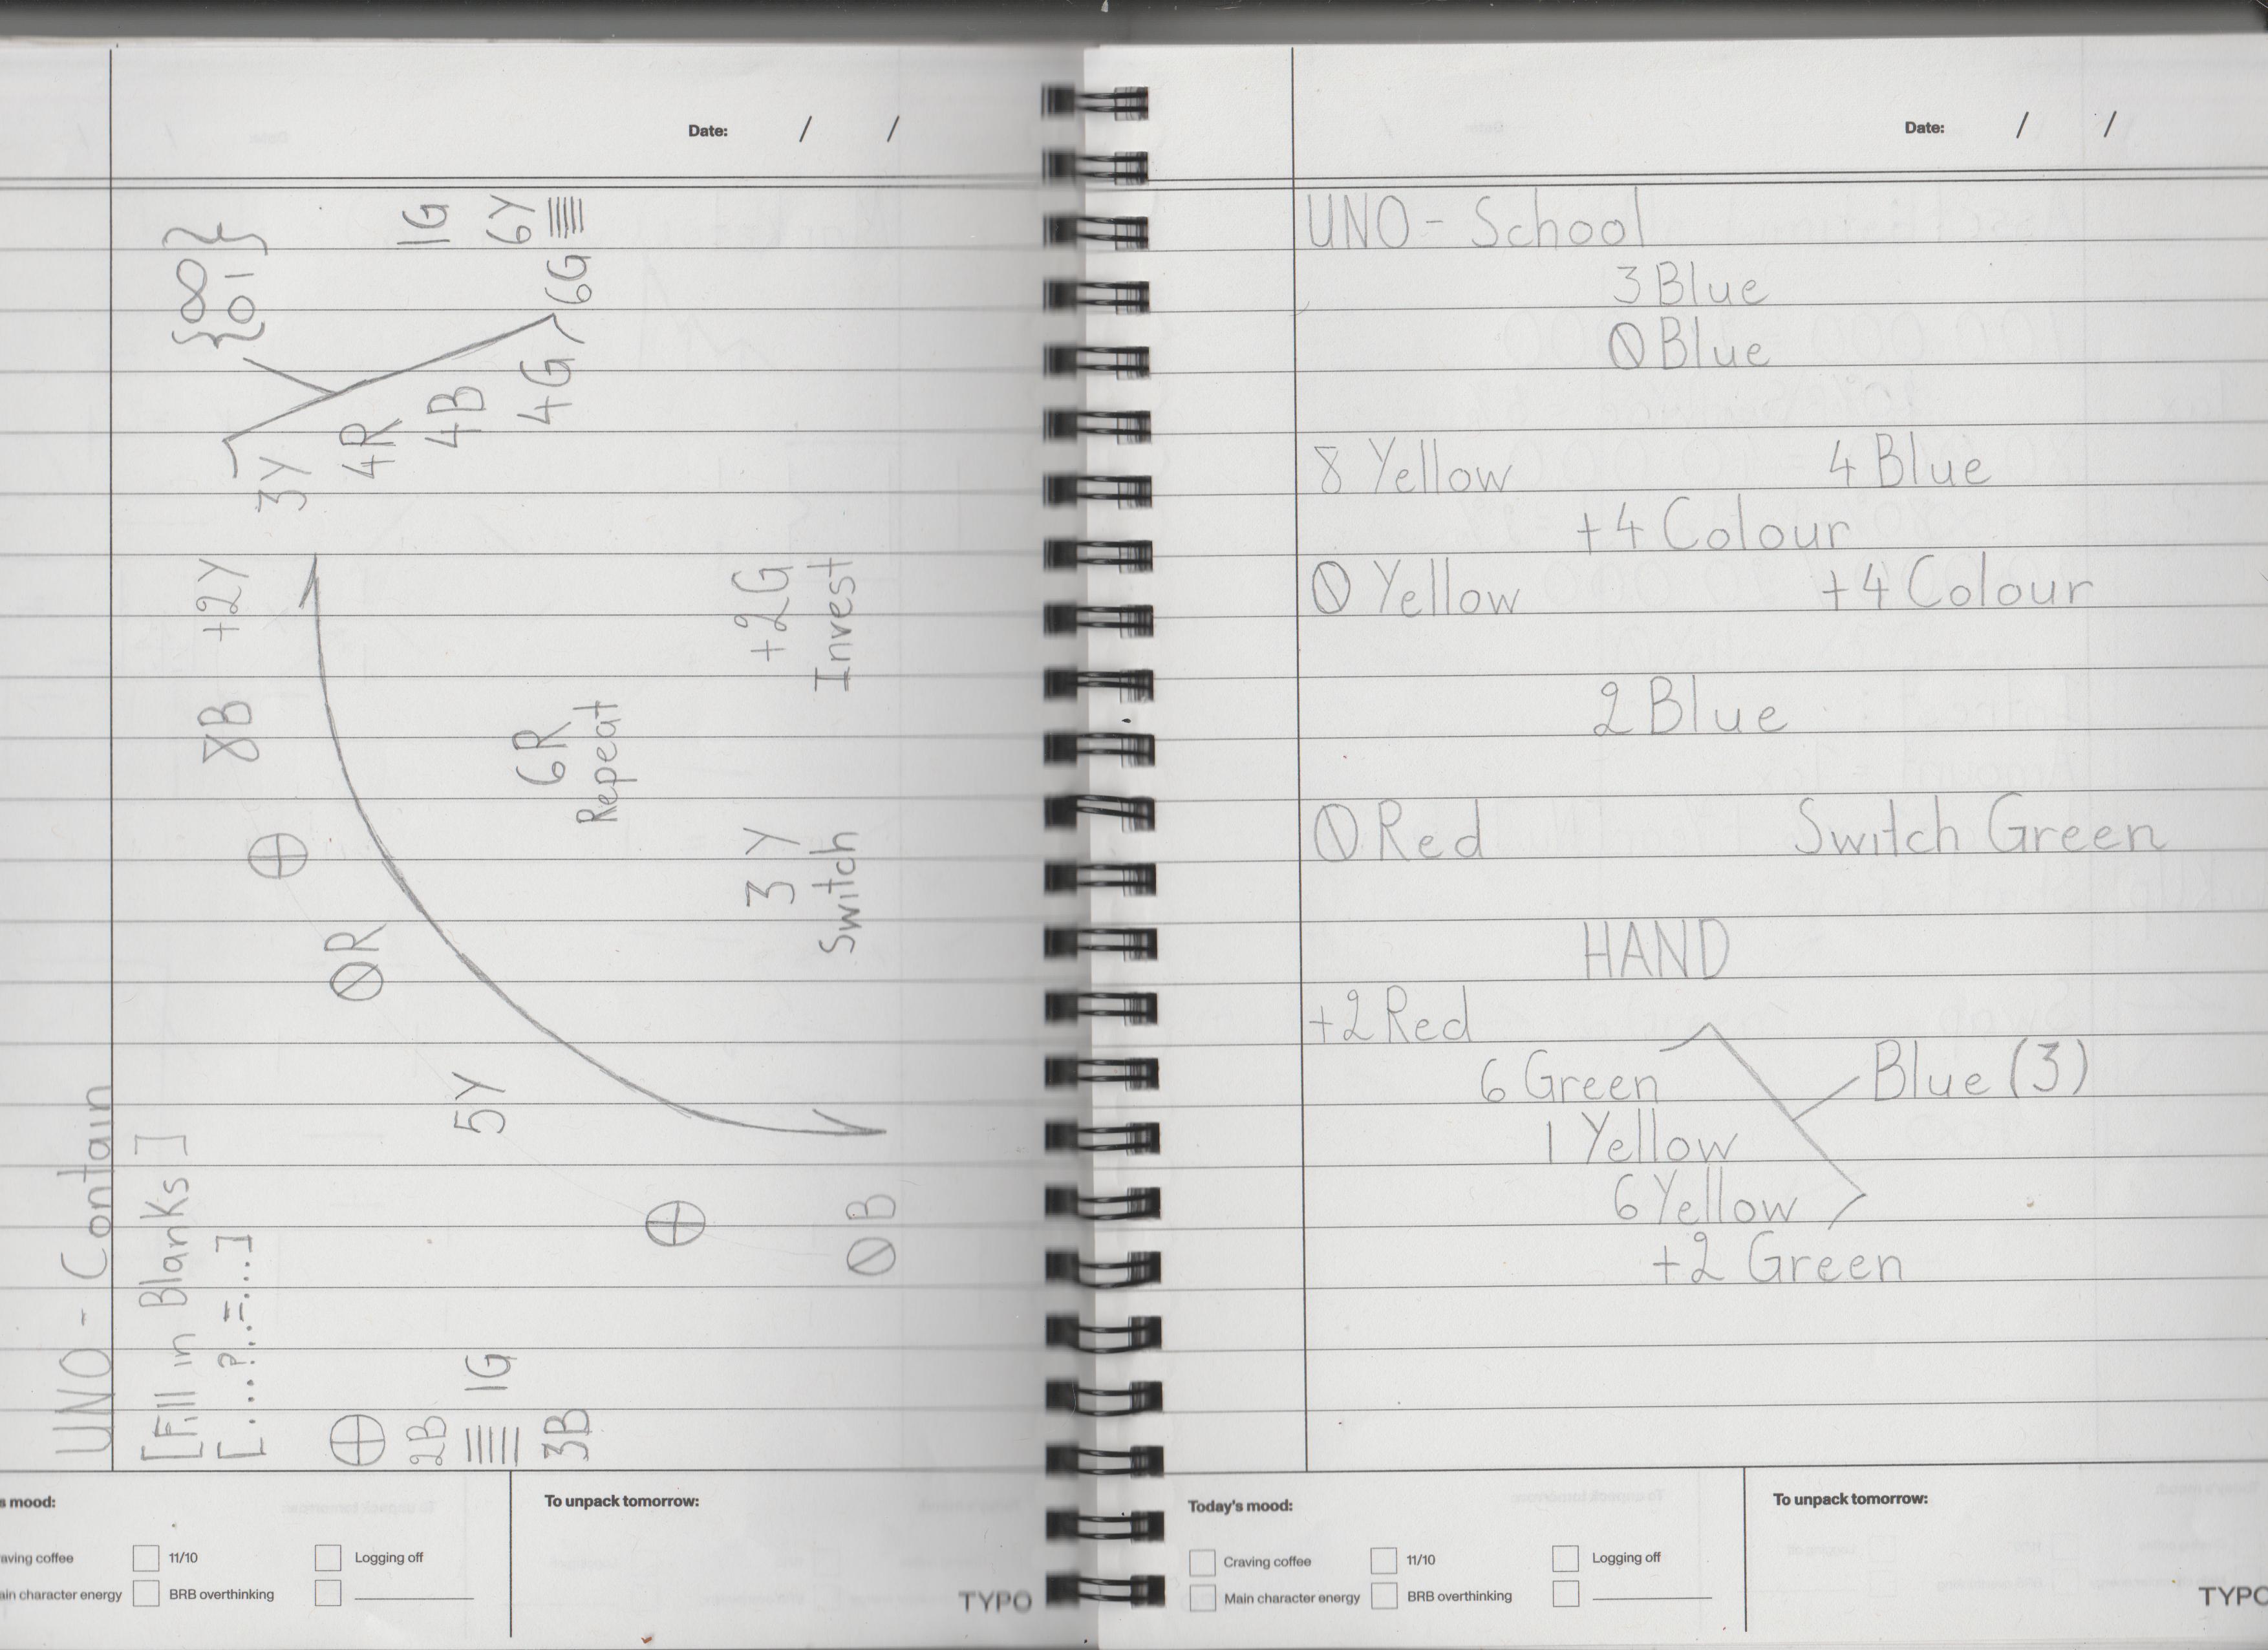 Date: / /
UNO - Contain
[Fill in Blanks]
[....?..=...]
⊕
2B
1G
3B
5Y
ØR
⊕
8B
+2Y
⊕
ØB
6R
Repeat
3Y
Switch
+2G
Invest
3Y
4R
4B
4G
{8}
{01}
1G
6Y
6G
s mood:
raving coffee
11/10
Logging off
ain character energy
BRB overthinking
To unpack tomorrow:
TYPO
Date: / /
UNO - School
3 Blue
Ø Blue
8 Yellow 4 Blue
+4 Colour
Ø Yellow +4 Colour
2 Blue
Ø Red Switch Green
HAND
+2 Red
6 Green Blue (3)
1 Yellow
6 Yellow
+2 Green
Today's mood:
Craving coffee
11/10
Logging off
Main character energy
BRB overthinking
To unpack tomorrow:
TYPO